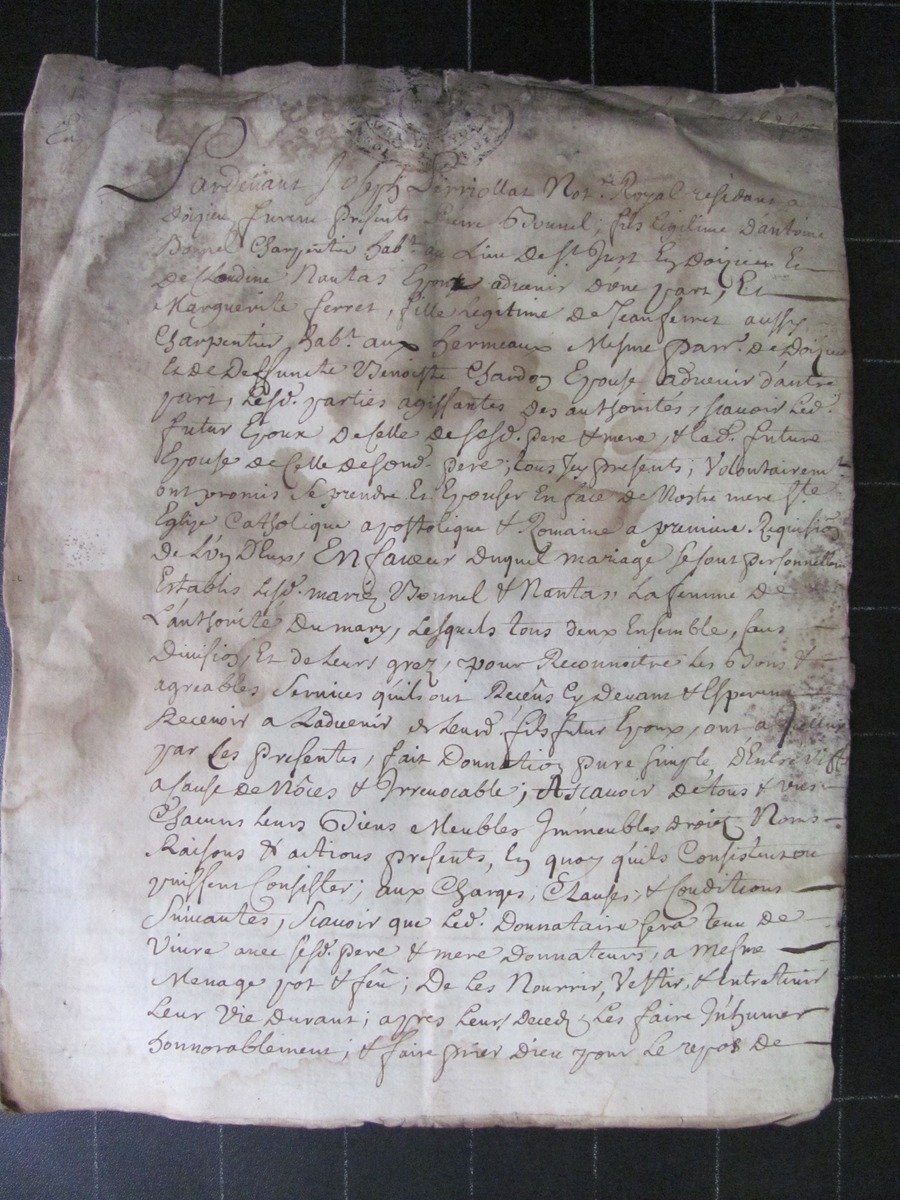 Pardevant Joseph Perriollat Not.re Royal residant a
doizieu furent presents Pierre Bonnel, fils legitime d'antoine
Bonnel Charpentier hab.t au Lieu de S.t Just En Doizieu Et
de Claudine Nantas Epoux advenir d'une part, Et
Marguerite ferret, fille legitime de Jean ferret aussy
Charpentier hab.t aux hermeaux Mesme parr.e de Doizieu
Et de Deffuncte Benoiste Chardon Epouse advenir d'autre
part, Lesd. parties agissantes des authorités, scavoir Led.
futur Epoux de Celle de sesd. pere & mere, & lad. future
Epouse de Celle de sond. pere, tous Icy presents; Volontairem.t
ont promis Se prendre Et Epouser En face de Nostre mere S.te
Eglize Catholique apostolique & Romaine a premiere Requisition
de L'un D'eux, En faveur duquel mariage Se sont personnellem
Establis Lesd. mariez Bonnel & Nantas, La femme de
L'authorité Du mary, Lesquels tous deux Ensemble, sans
Division, Et de Leurs grez, pour Reconnoitre Les Bons &
agreables Services qu'ils ont Receus Cy Devant & Esperent
Recevoir a L'advenir de Leurd. fils futur Epoux, ont a
par Les presentes, fait Donnation pure simple D'Entre vifs
a Cause de Nôces & Irrevocable; Ascavoir De tous & uns
Chacuns Leurs Biens Meubles Immeubles droits Noms
Raisons & actions presents, En quoy qu'ils Consistent ou
puissent Consister; aux Charges, Clauses, & Conditions
Suivantes, Scavoir que Led. Donnataire sera tenu de
Vivre avec sesd. pere & mere Donnateurs, a mesme
Menage pot & feu; De Les Nourrir, Vestir, & Entretenir
Leur Vie Durant; apres Leurs Decedz Les faire Inhumer
honnorablement; & faire prier Dieu pour Le repos De